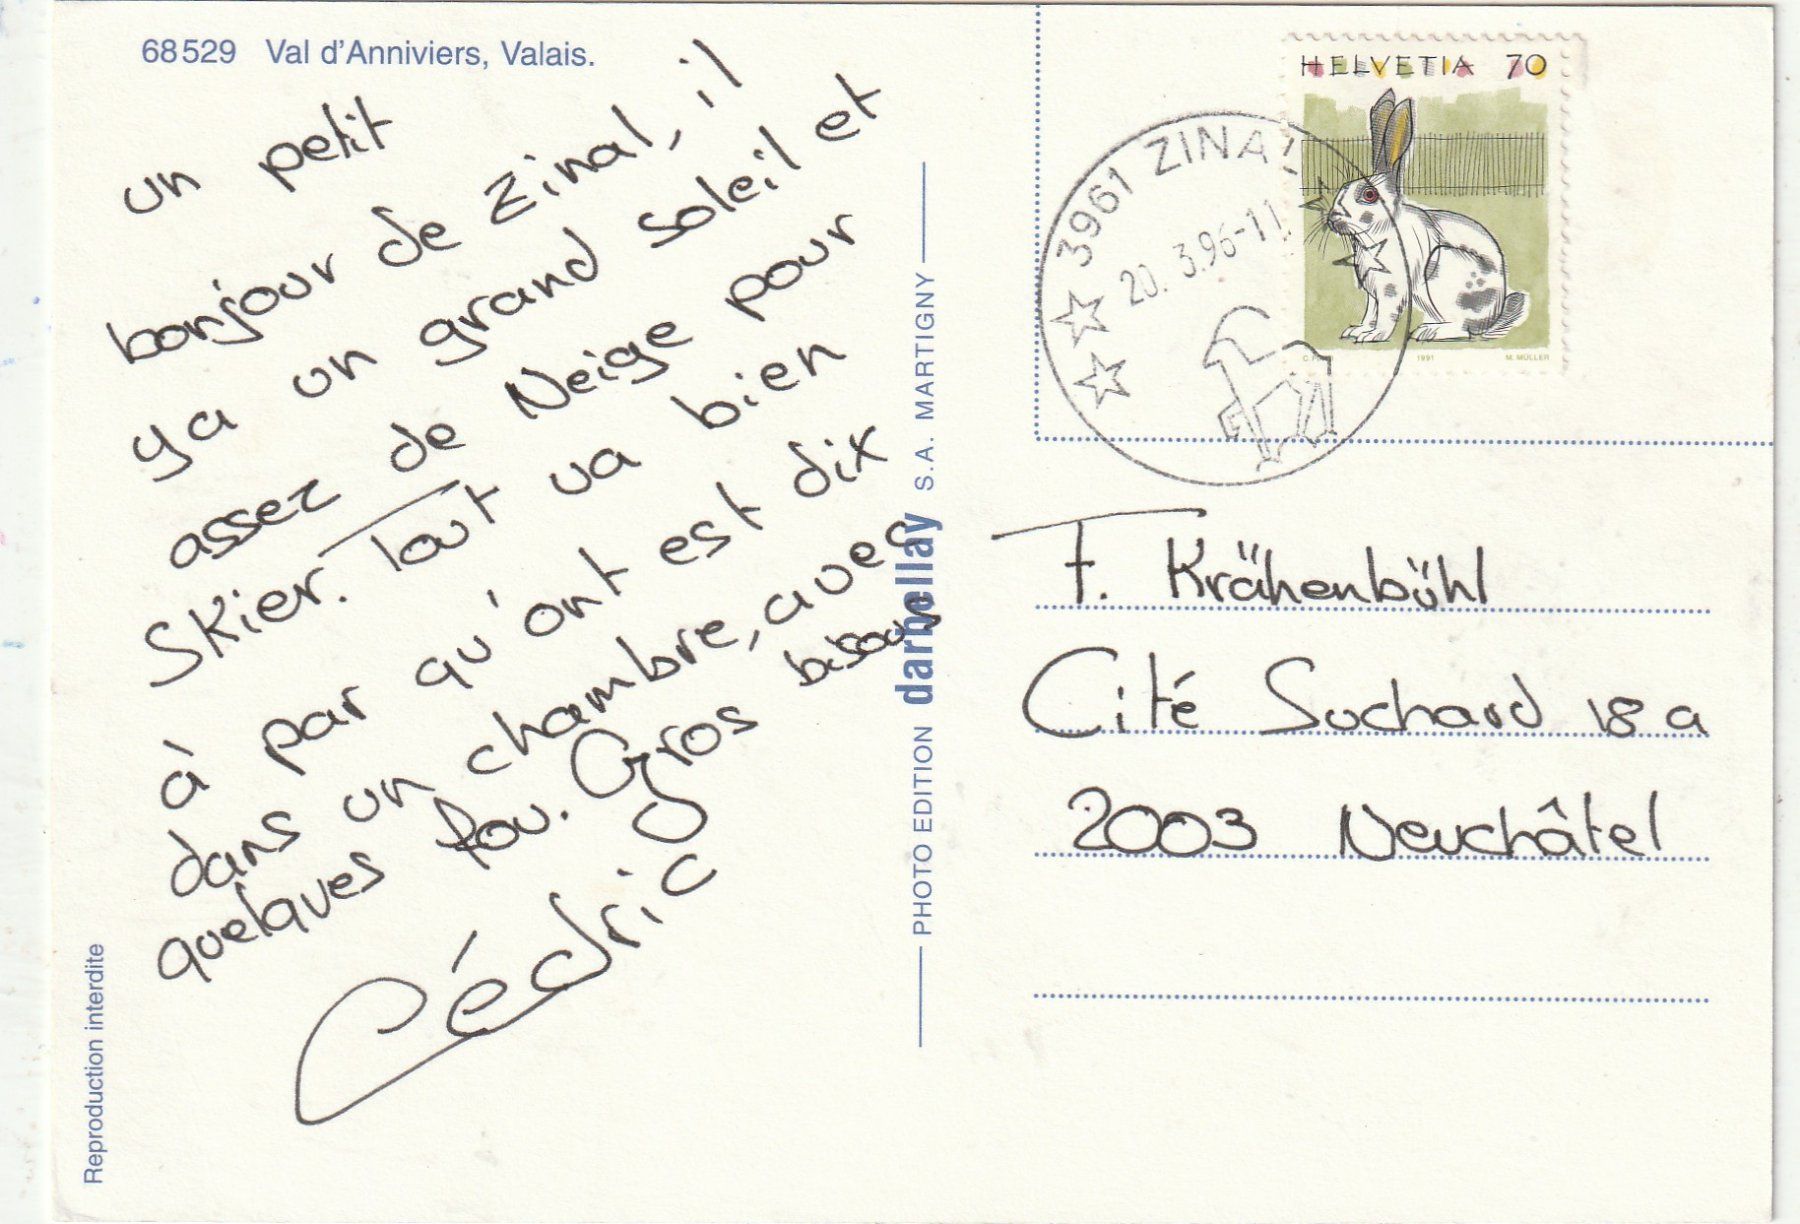 68529 Val d'Anniviers, Valais.
un petit
bonjour de Zinal, il
ya un grand soleil et
assez de Neige pour
Skier. Tout va bien
à par qu'ont est dix
dans un chambre, avec
quelques fou. Gros bisous
Cédric
Reproduction interdite
PHOTO EDITION darbellay S.A. MARTIGNY
HELVETIA 70
1991 M. MÜLLER
3961 ZINAL
20. 3.96-11
F. Krähenbühl
Cité Suchard 18a
2003 Neuchâtel